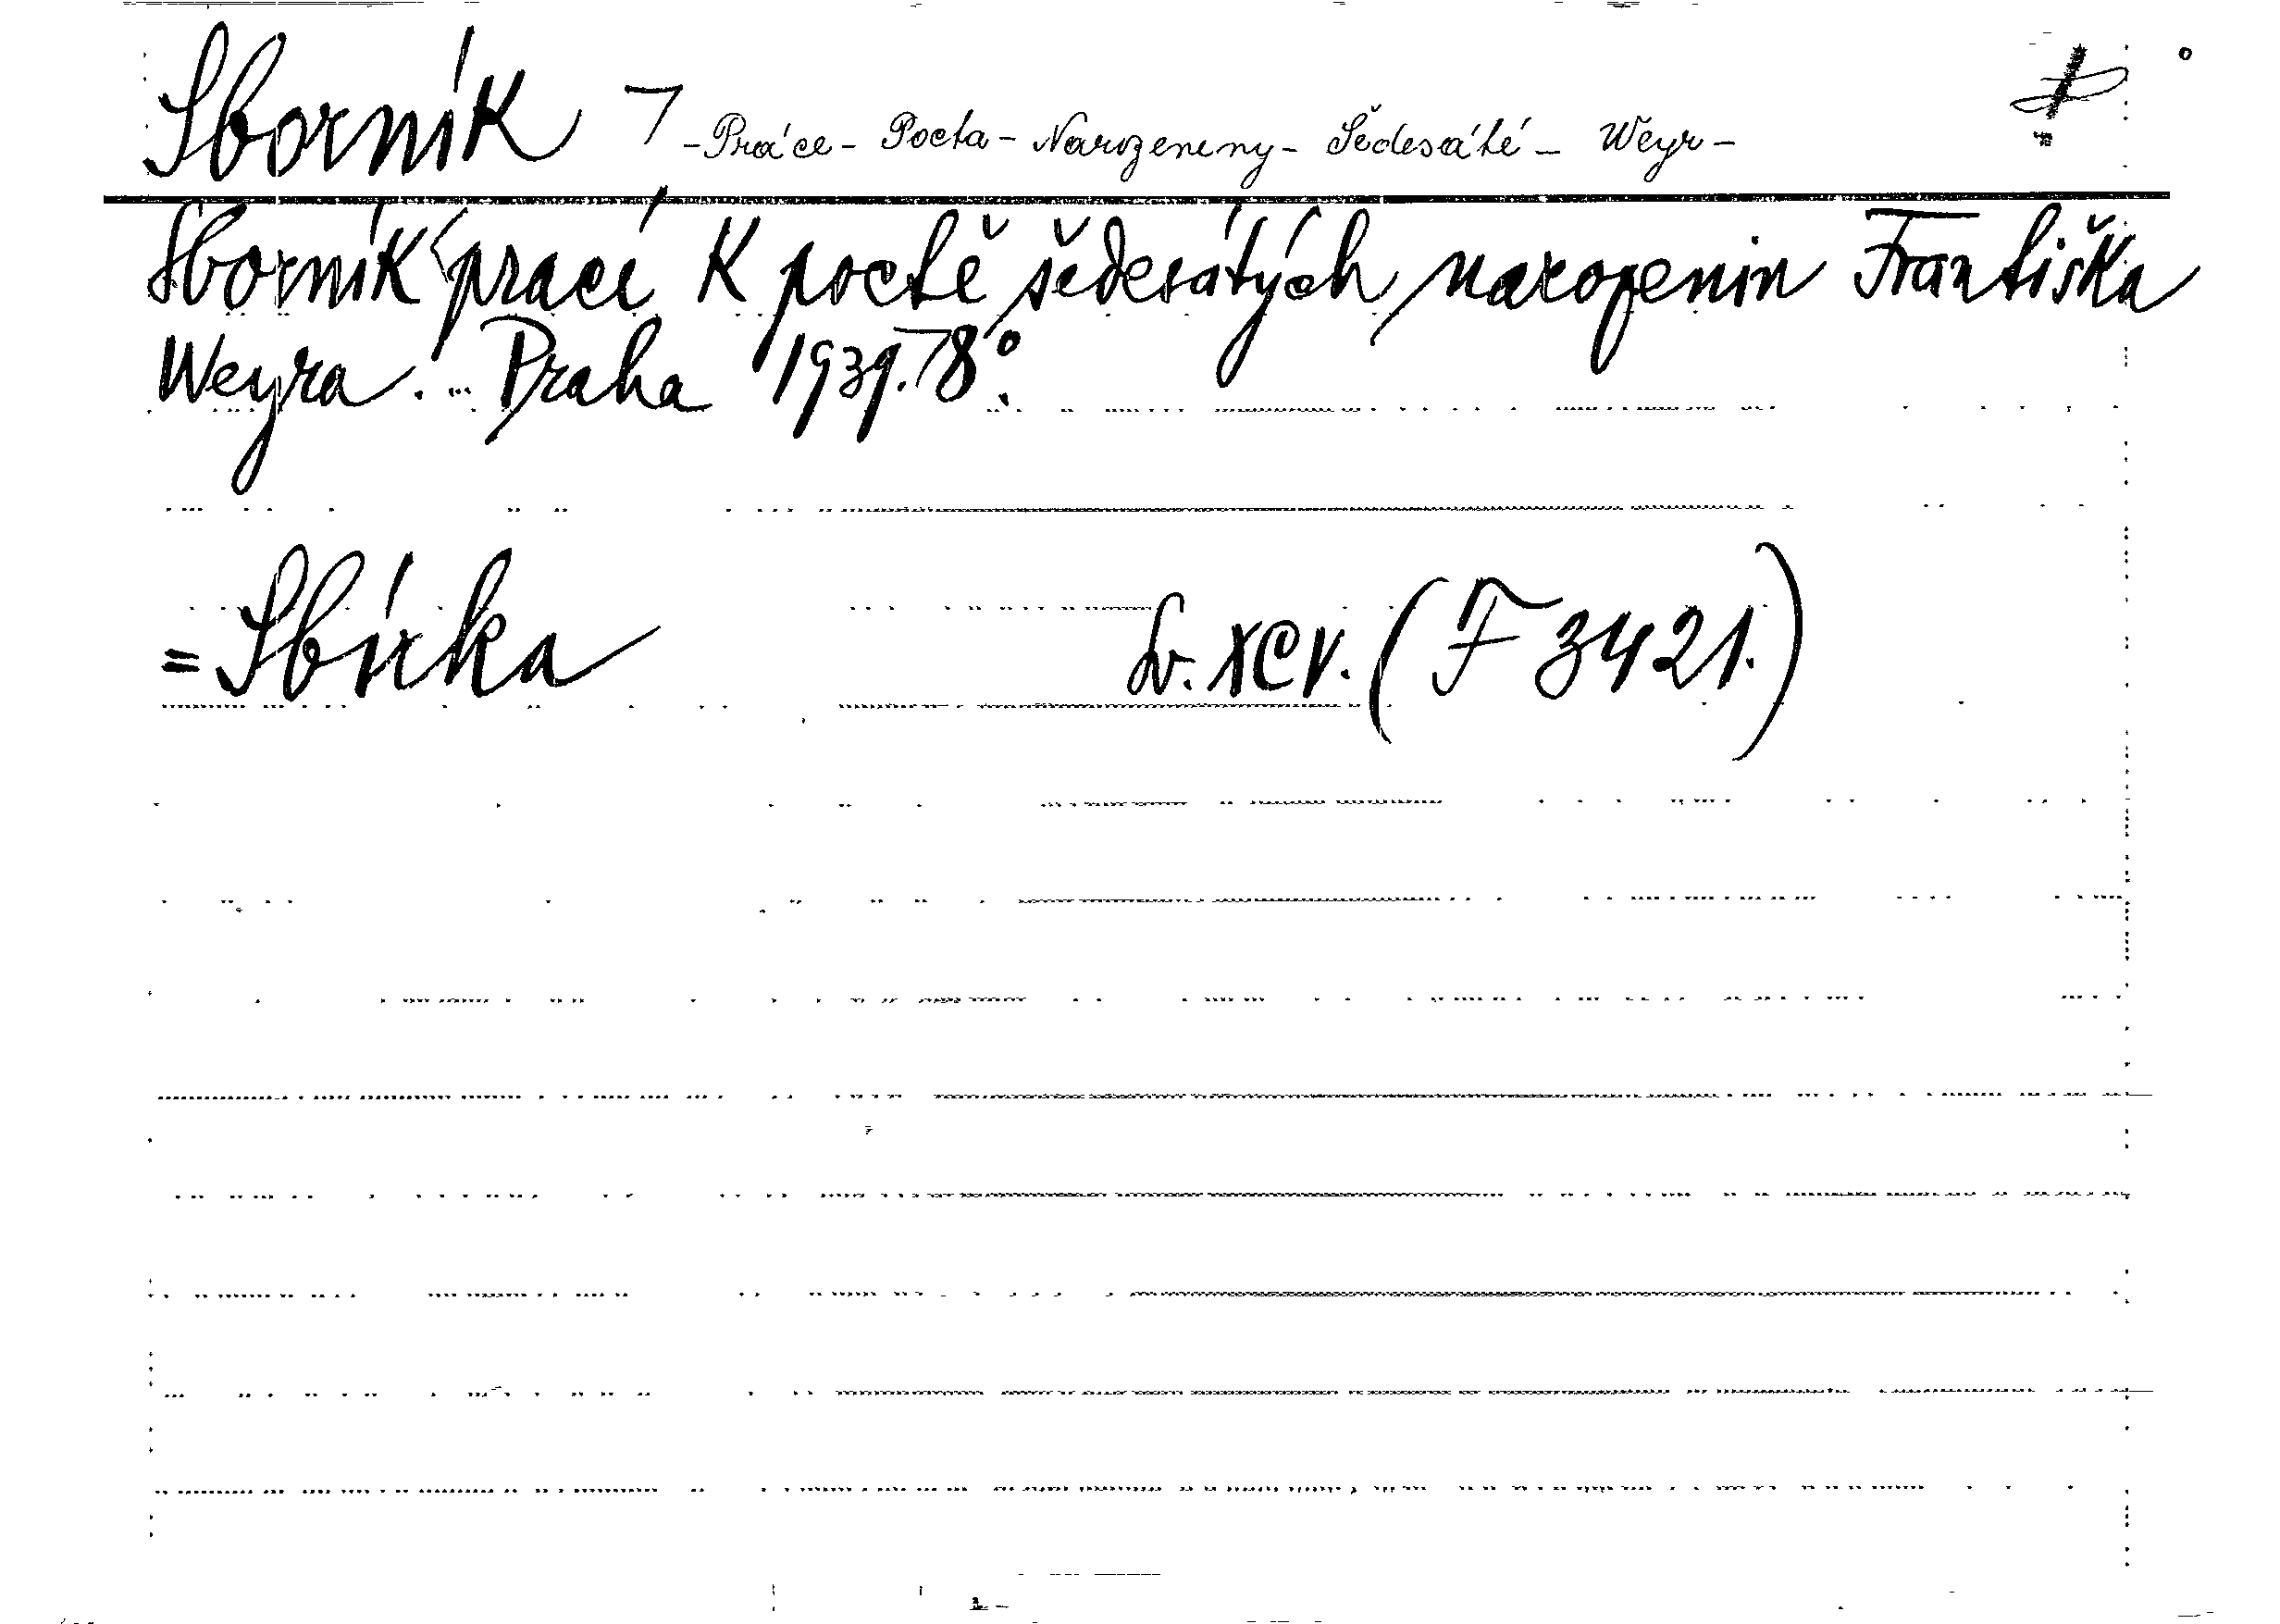 Sborník -Práce- Pocta- Narozeneny- Šedesáté- Weyr-
Sborník prací K poctě šedesátých narozenin Františka
Weyra. Praha 1939. 8°.
=Sbírka Sv. XCV. (F 3421.)